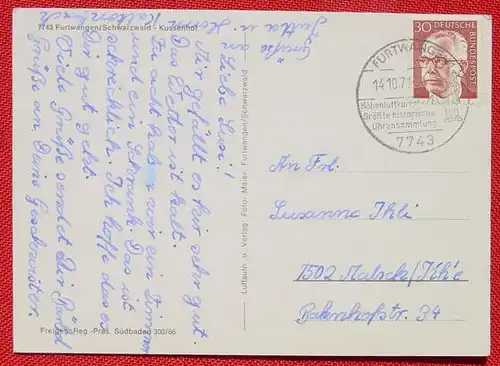 7743 Furtwangen/Schwarzwald - Kussenhof
Liebe Susi!
Mir gefällt es hir sehr gut.
Das Wetter ist kalt.
Zu acht haben wir ein Zimmer
und ein Schrank. Das ist
schrecklich. Ich hoffe das es
Dir gut geht.
Viele Grüße sendet Dir
Grüße an Deine Geschwister.
Grüße an
Jutta u.
Freigeg. Reg.-Präs. Südbaden 300/66
Luftaufn. u. Verlag Foto: Maier Furtwangen/Schwarzwald
30 DEUTSCHE BUNDESPOST
FURTWANGEN
14.10.71
Höhenluftkurort
Größte historische
Uhrensammlung
7743
An Frl.
Susanne Ihli
7502 Malsch/Kh'e
Bahnhofstr. 34